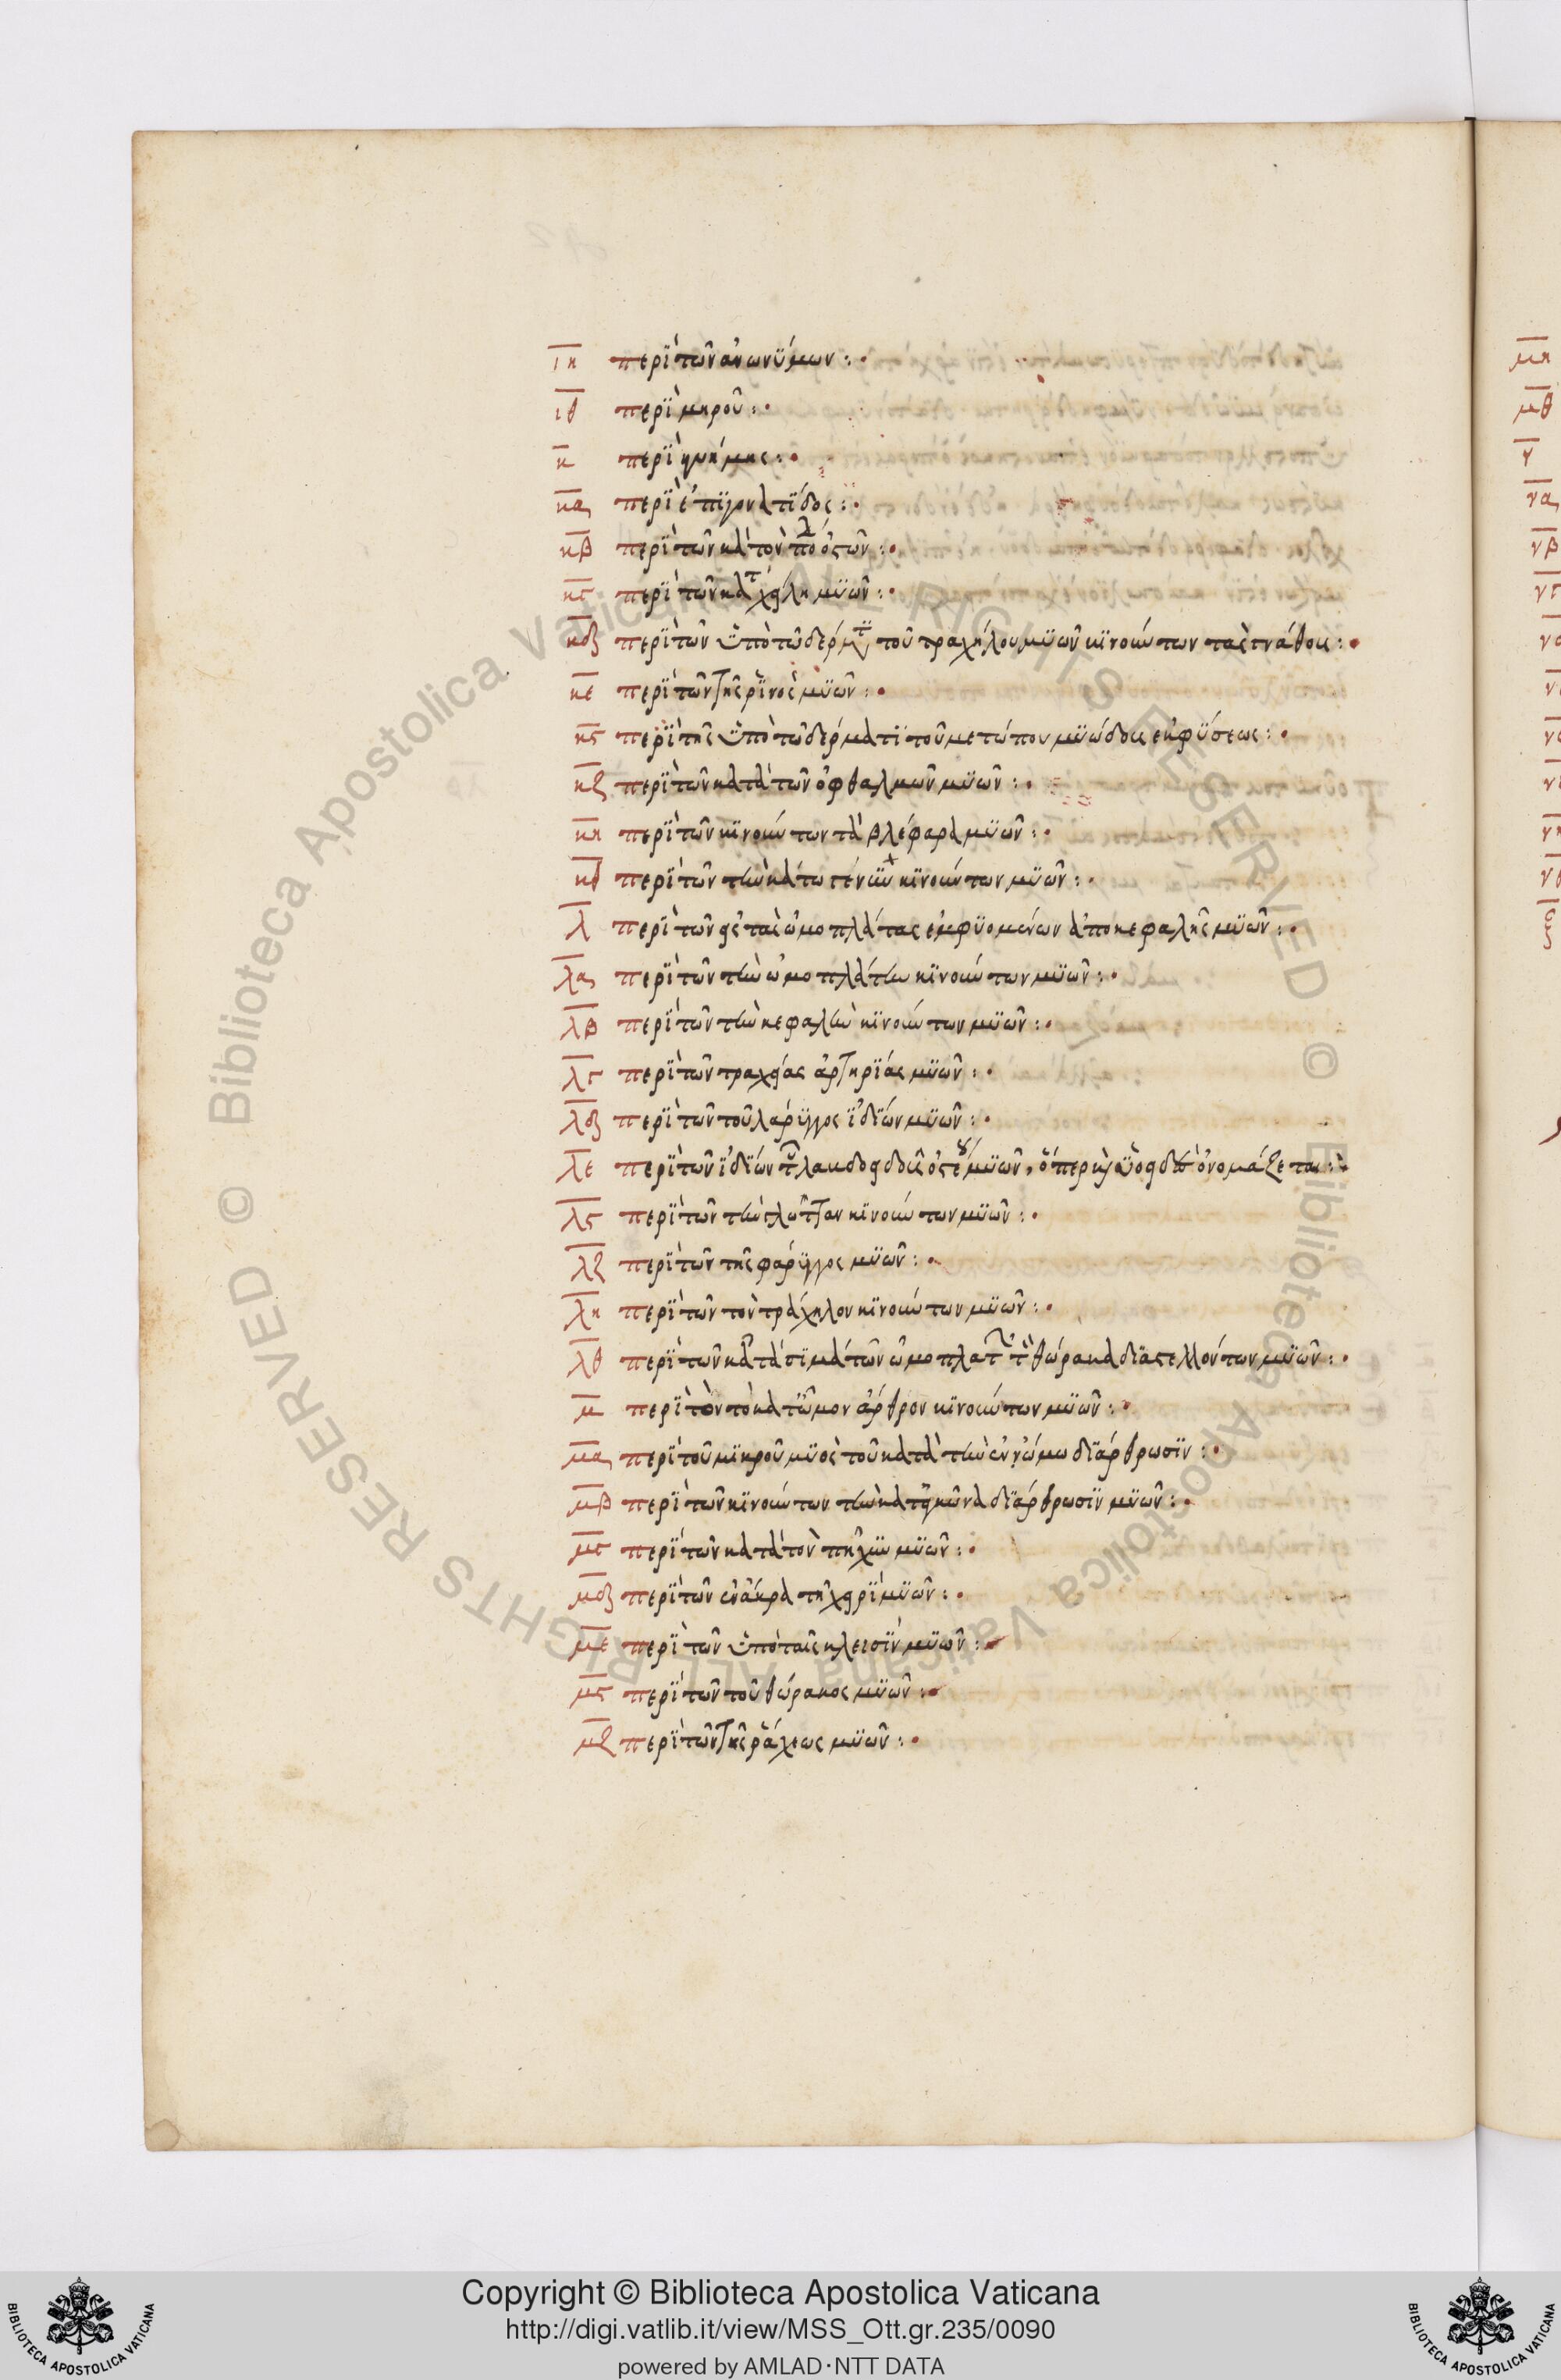 ιη περὶ τῶν ἀνωνύμων :·
ιθ περὶ μηροῦ :·
κ περὶ κνήμης :·
κα περὶ ἐπιγονατίδος :·
κβ περὶ τῶν κατὰ τὸν πόδα ὀστῶν :·
κγ περὶ τῶν κατὰ χείλη μυῶν :·
κδ περὶ τῶν ὑπὸ τῶ δέρματι τοῦ τραχήλου μυῶν κινούντων τὰς γνάθους :·
κε περὶ τῶν τῆς ῥινὸς μυῶν :·
κς περὶ τῆς ὑπὸ τῶ δέρματι τοῦ μετώπου μυώδους ἐκφύσεως :·
κζ περὶ τῶν κατὰ τῶν ὀφθαλμῶν μυῶν :·
κη περὶ τῶν κινούντων τὰ βλέφαρα μυῶν :·
κθ περὶ τῶν τὴν κάτω γένυν κινούντων μυῶν :·
λ περὶ τῶν εἰς τὰς ὠμοπλάτας ἐμφυομένων ἀπὸ κεφαλῆς μυῶν :·
λα περὶ τῶν τὴν ὠμοπλάτην κινούντων μυῶν :·
λβ περὶ τῶν τὴν κεφαλὴν κινούντων μυῶν :·
λγ περὶ τῶν τραχείας ἀρτηρίας μυῶν :·
λδ περὶ τῶν τοῦ λάρυγγος ἰδίων μυῶν :·
λε περὶ τῶν ἰδίων τοῦ λαμδοειδοῦς ὀστέου μυῶν, ὅπερ καὶ ὑοειδὲς ὀνομάζεται :·
λς περὶ τῶν τὴν γλῶτταν κινούντων μυῶν :·
λζ περὶ τῶν τῆς φάρυγγος μυῶν :·
λη περὶ τῶν τὸν τράχηλον κινούντων μυῶν :·
λθ περὶ τῶν κατὰ τὰ σιμὰ τῶν ὠμοπλατῶν τὸν θώρακα διαστελλόντων μυῶν :·
μ περὶ τὸν τὸ κατ ὦμον ἄρθρον κινούντων μυῶν :·
μα περὶ τοῦ μικροῦ μυὸς τοῦ κατὰ τὴν ἐν ὤμω διάρθρωσιν :·
μβ περὶ τῶν κινούντων τὴν κατ ἀγκῶνα διάρθρωσιν μυῶν :·
μγ περὶ τῶν κατὰ τὸν πῆχυν μυῶν :·
μδ περὶ τῶν ἐν ἄκρα τῆ χειρὶ μυῶν :·
με περὶ τῶν ὑπὸ ταῖς κλεισὶν μυῶν :·
μς περὶ τῶν τοῦ θώρακος μυῶν :·
μζ περὶ τῶν τῆς ῥάχεως μυῶν :·
μη
μθ
ν
να
νβ
νγ
νη
ξ
© Biblioteca Apostolica Vaticana ALL RIGHTS RESERVED © Biblioteca Apostolica Vaticana ALL RIGHTS RESERVED
Copyright © Biblioteca Apostolica Vaticana
http://digi.vatlib.it/view/MSS_Ott.gr.235/0090
powered by AMLAD·NTT DATA
BIBLIOTECA APOSTOLICA VATICANA
BIBLIOTECA APOSTOLICA VATICANA